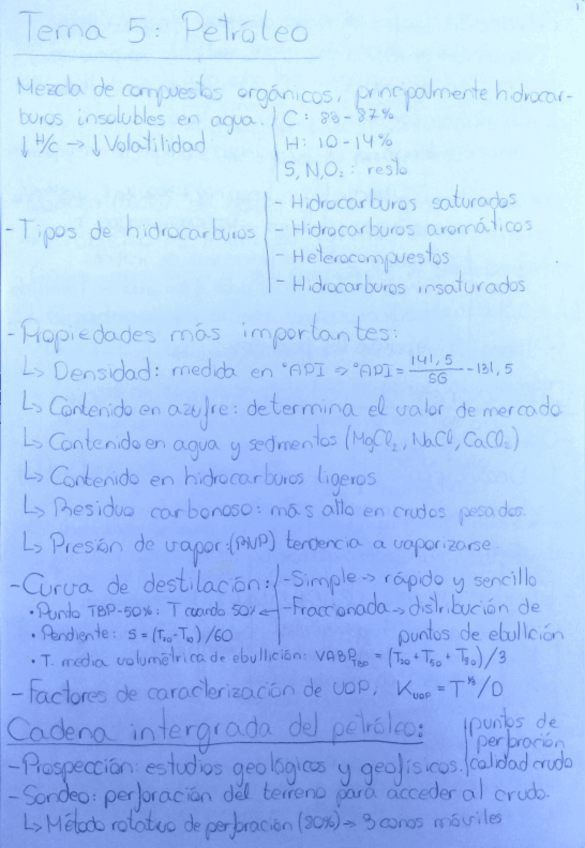 Tema 5: Petróleo
Mezcla de compuestos orgánicos, principalmente hidrocar-
buros insolubles en agua. C: 83-87%
↓ H/C → ↓ Volatilidad H: 10-14%
S, N, O₂: resto
- Tipos de hidrocarburos
- Hidrocarburos saturados
- Hidrocarburos aromáticos
- Heterocompuestos
- Hidrocarburos insaturados
- Propiedades más importantes:
↳ Densidad: medida en °API ⇒ °API = 141,5/SG - 131,5
↳ Contenido en azufre: determina el valor de mercado
↳ Contenido en agua y sedmentos (MgCl₂, NaCl, CaCl₂)
↳ Contenido en hidrocarburos ligeros
↳ Residuo carbonoso: más alto en crudos pesados.
↳ Presión de vapor: tendencia a vaporizarse.
- Curva de destilación: - Simple → rápido y sencillo
• Punto TBP-50%: T cuando 50% ← - Fraccionada → distribución de
• Pendiente: S = (T₇₀-T₁₀)/60 puntos de ebullición
• T. media volumétrica de ebullición: VABP_TBP = (T₂₀ + T₅₀ + T₈₀)/3
- Factores de caracterización de UOP. K_UOP = T^⅓/D
Cadena intergrada del petróleo: puntos de
perforación
- Prospección: estudios geológicos y geofísicos. calidad crudo
- Sondeo: perforación del terreno para acceder al crudo.
↳ Método rotativo de perforación (90%) → 3 conos móviles